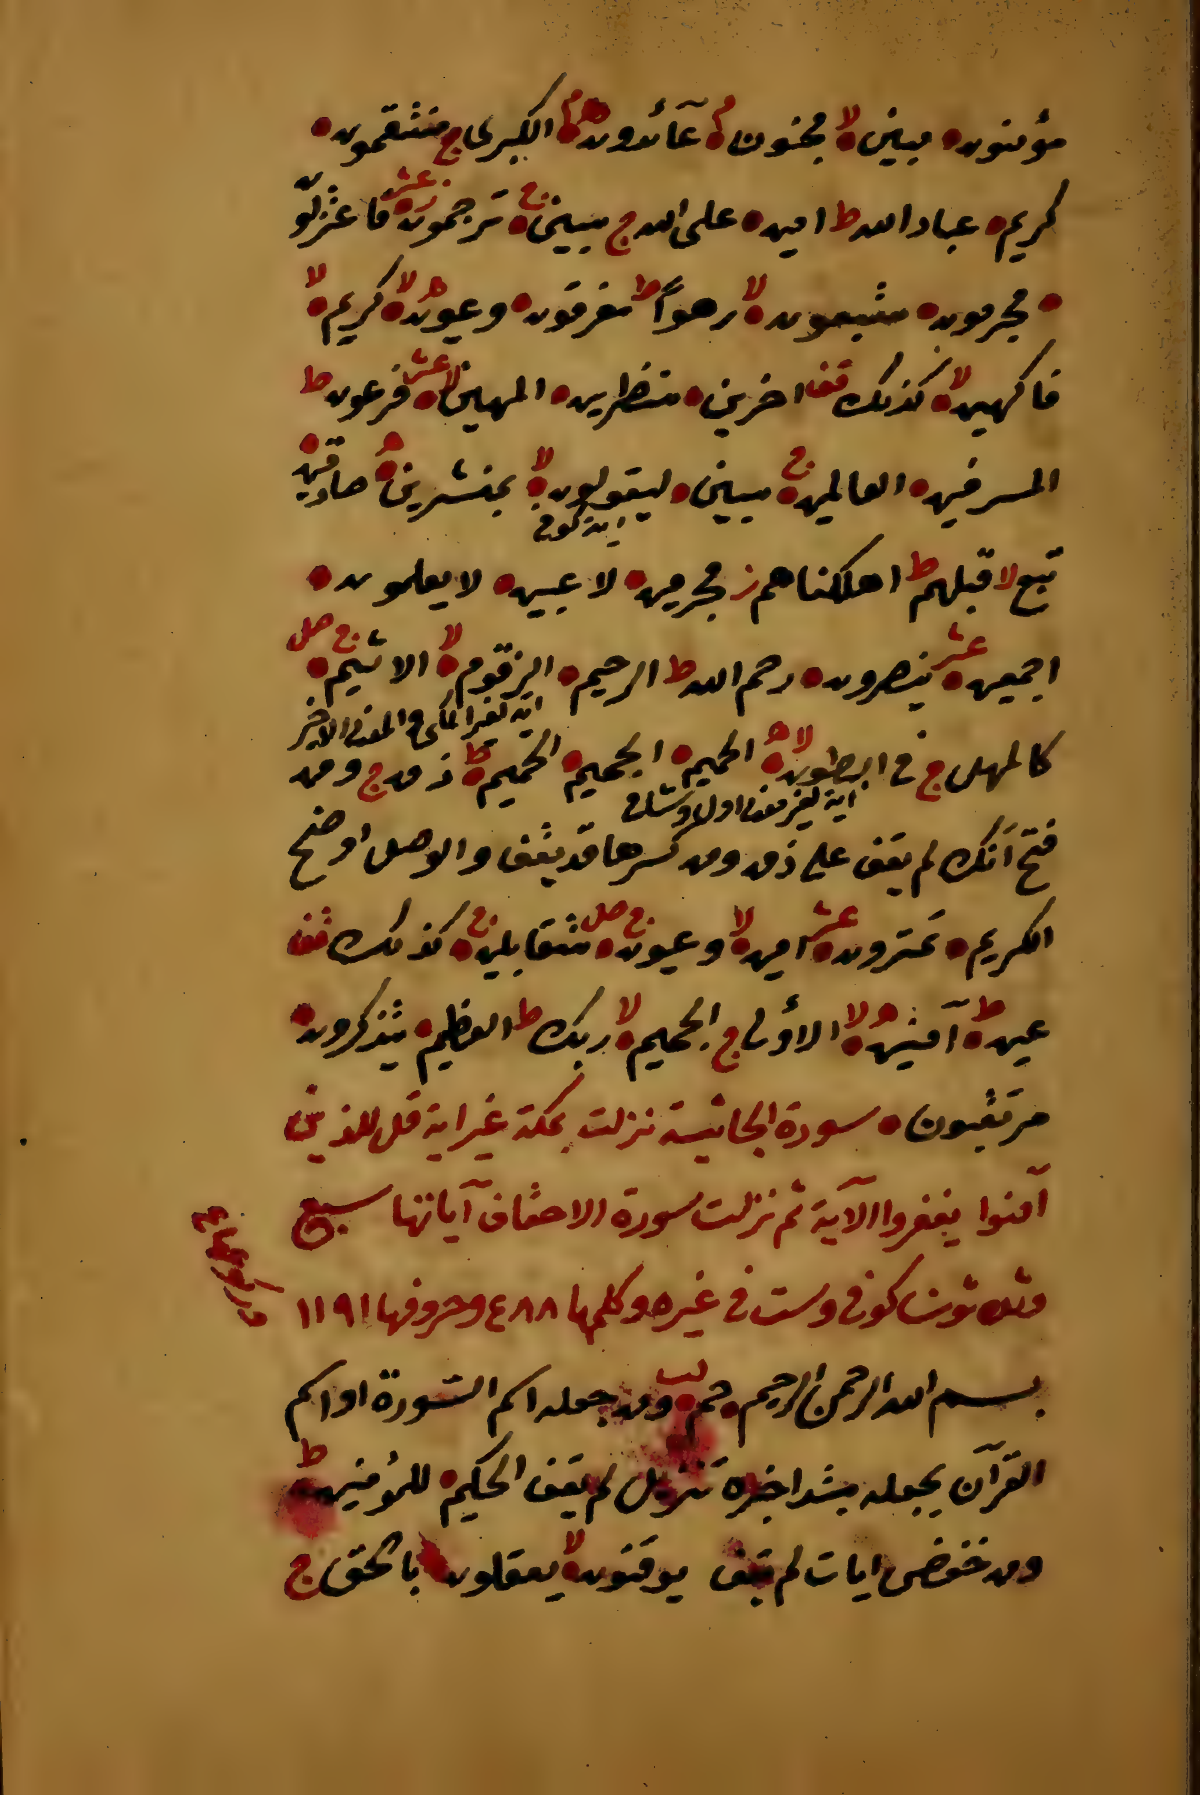 مؤمنون مبين لا مجنون م عآئدون م الكبرى ج منتقمون
كريم عباد الله ط امين على الله ج مبين ج ترجمون عشر فاعتزلون
مجرمون متبعون لا رهواً ط مغرقون وعيون لا كريم لا
فاكهين لا كذلك قف اخرين منظرين المهين لا عشر فرعون ط
المسرفين العالمين ج مبين ليقولون لا بمنشرين صادقين
اية كوفى
تبع لا قبلهم ط اهلكناهم ز مجرمين لاعبين لا يعلمون
اجمعين عشر ينصرون رحم الله ط الرحيم الزقوم لا الاثيم ج صل
اية لغير المكى والمدنى الاخر
كالمهل ج فى البطون لا الحميم الجحيم الحميم ط ذق ج ومن
فتح أنك لم يقف على ذق ومن كسرها قد يقف والوصل اوضح
الكريم تمترون عشر امين لا وعيون ج صل متقابلين ج كذلك قف
عين ط آمنين لا الاؤلى ج الجحيم لا ربك ط العظيم يتذكرون
مرتقبون سورة الجاثية نزلت بمكة غير اية قل للذين
آمنوا يغفروا الآية ثم نزلت سورة الاحقاف آياتها سبع
وثلاثون كوفى وست فى غيره وكلمها ٤٨٨ وحروفها ٢١٩١
بسم الله الرحمن الرحيم حم ومن جعله اسم السورة او اسم
القرآن يجعله مبتدا خبره تنزيل لم يقف الحكيم للمؤمنين ط
ومن خفض ايات لم يقف يوقنون لا يعقلون بالحق ج